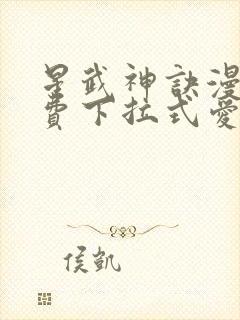 星武神訣漫
費下拉式愛
侯凱